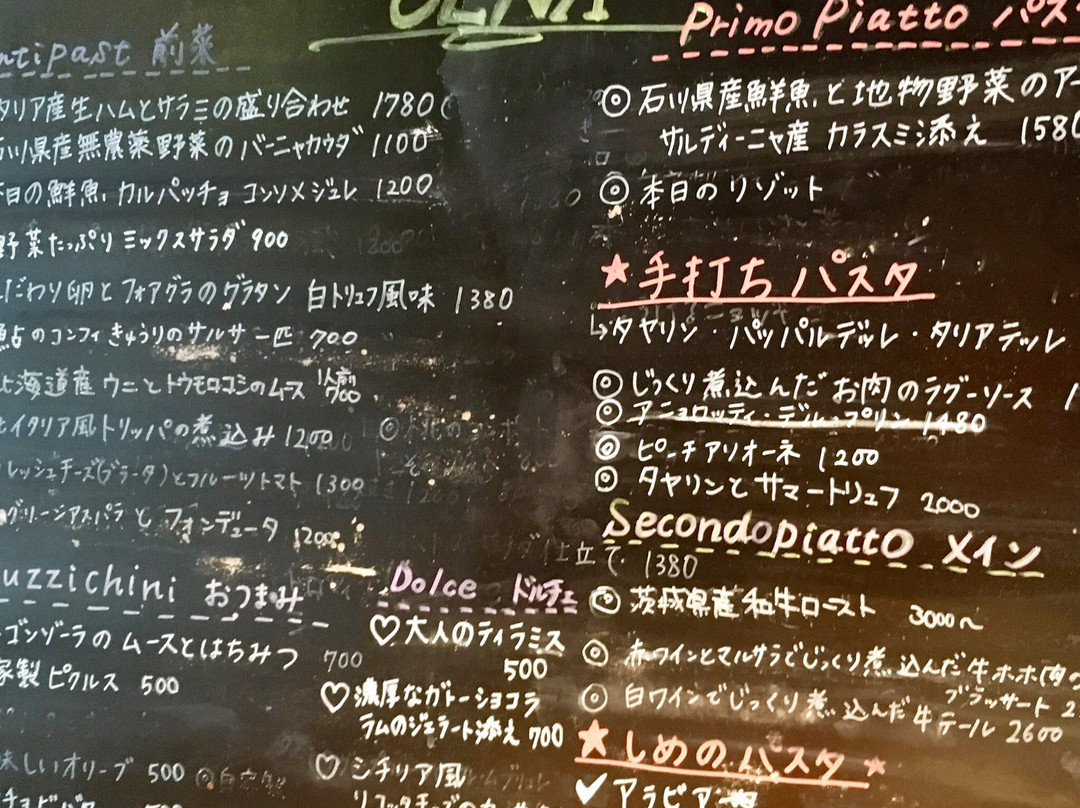 CENA
ntipast 前菜
タリア産生ハムとサラミの盛り合わせ 1780
石川県産無農薬野菜のバーニャカウダ 1100
本日の鮮魚カルパッチョ コンソメジュレ 1200
野菜たっぷりミックスサラダ 900
だわり卵とフォアグラのグラタン 白トリュフ風味 1380
鮎のコンフィきゅうりのサルサ 一匹 700
北海道産ウニとトウモロコシのムース 1人前 700
イタリア風トリッパの煮込み 1200
レッシュチーズ(ブラータ)とフルーツトマト 1300
グリーンアスパラとフォンデュータ 1200
uzzichini おつまみ
ゴンゾーラのムースとはちみつ 700
家製ピクルス 500
味しいオリーブ 500
Dolce ドルチェ
♡大人のティラミス
500
♡濃厚なガトーショコラ
ラムのジェラート添え 700
♡シチリア風
Primo Piatto パス
◎石川県産鮮魚と地物野菜のアー
サルディーニャ産 カラスミ添え 1580
◎本日のリゾット
★手打ちパスタ
↳タヤリン・パッパルデッレ・タリアテッレ
◎じっくり煮込んだお肉のラグーソース 1
◎アニョロッティ・デル・プリン 1480
◎ピーチアリオーネ 1200
◎タヤリンとサマートリュフ 2000
Secondopiatto メイン
仕立て 1380
◎茨城県産和牛ロースト 3000〜
◎赤ワインとマルサラでじっくり煮込んだ牛ホホ肉の
ブラッサート 2
◎白ワインでじっくり煮込んだ牛テール 2600
★しめのパスタ★
✓アラビアータ